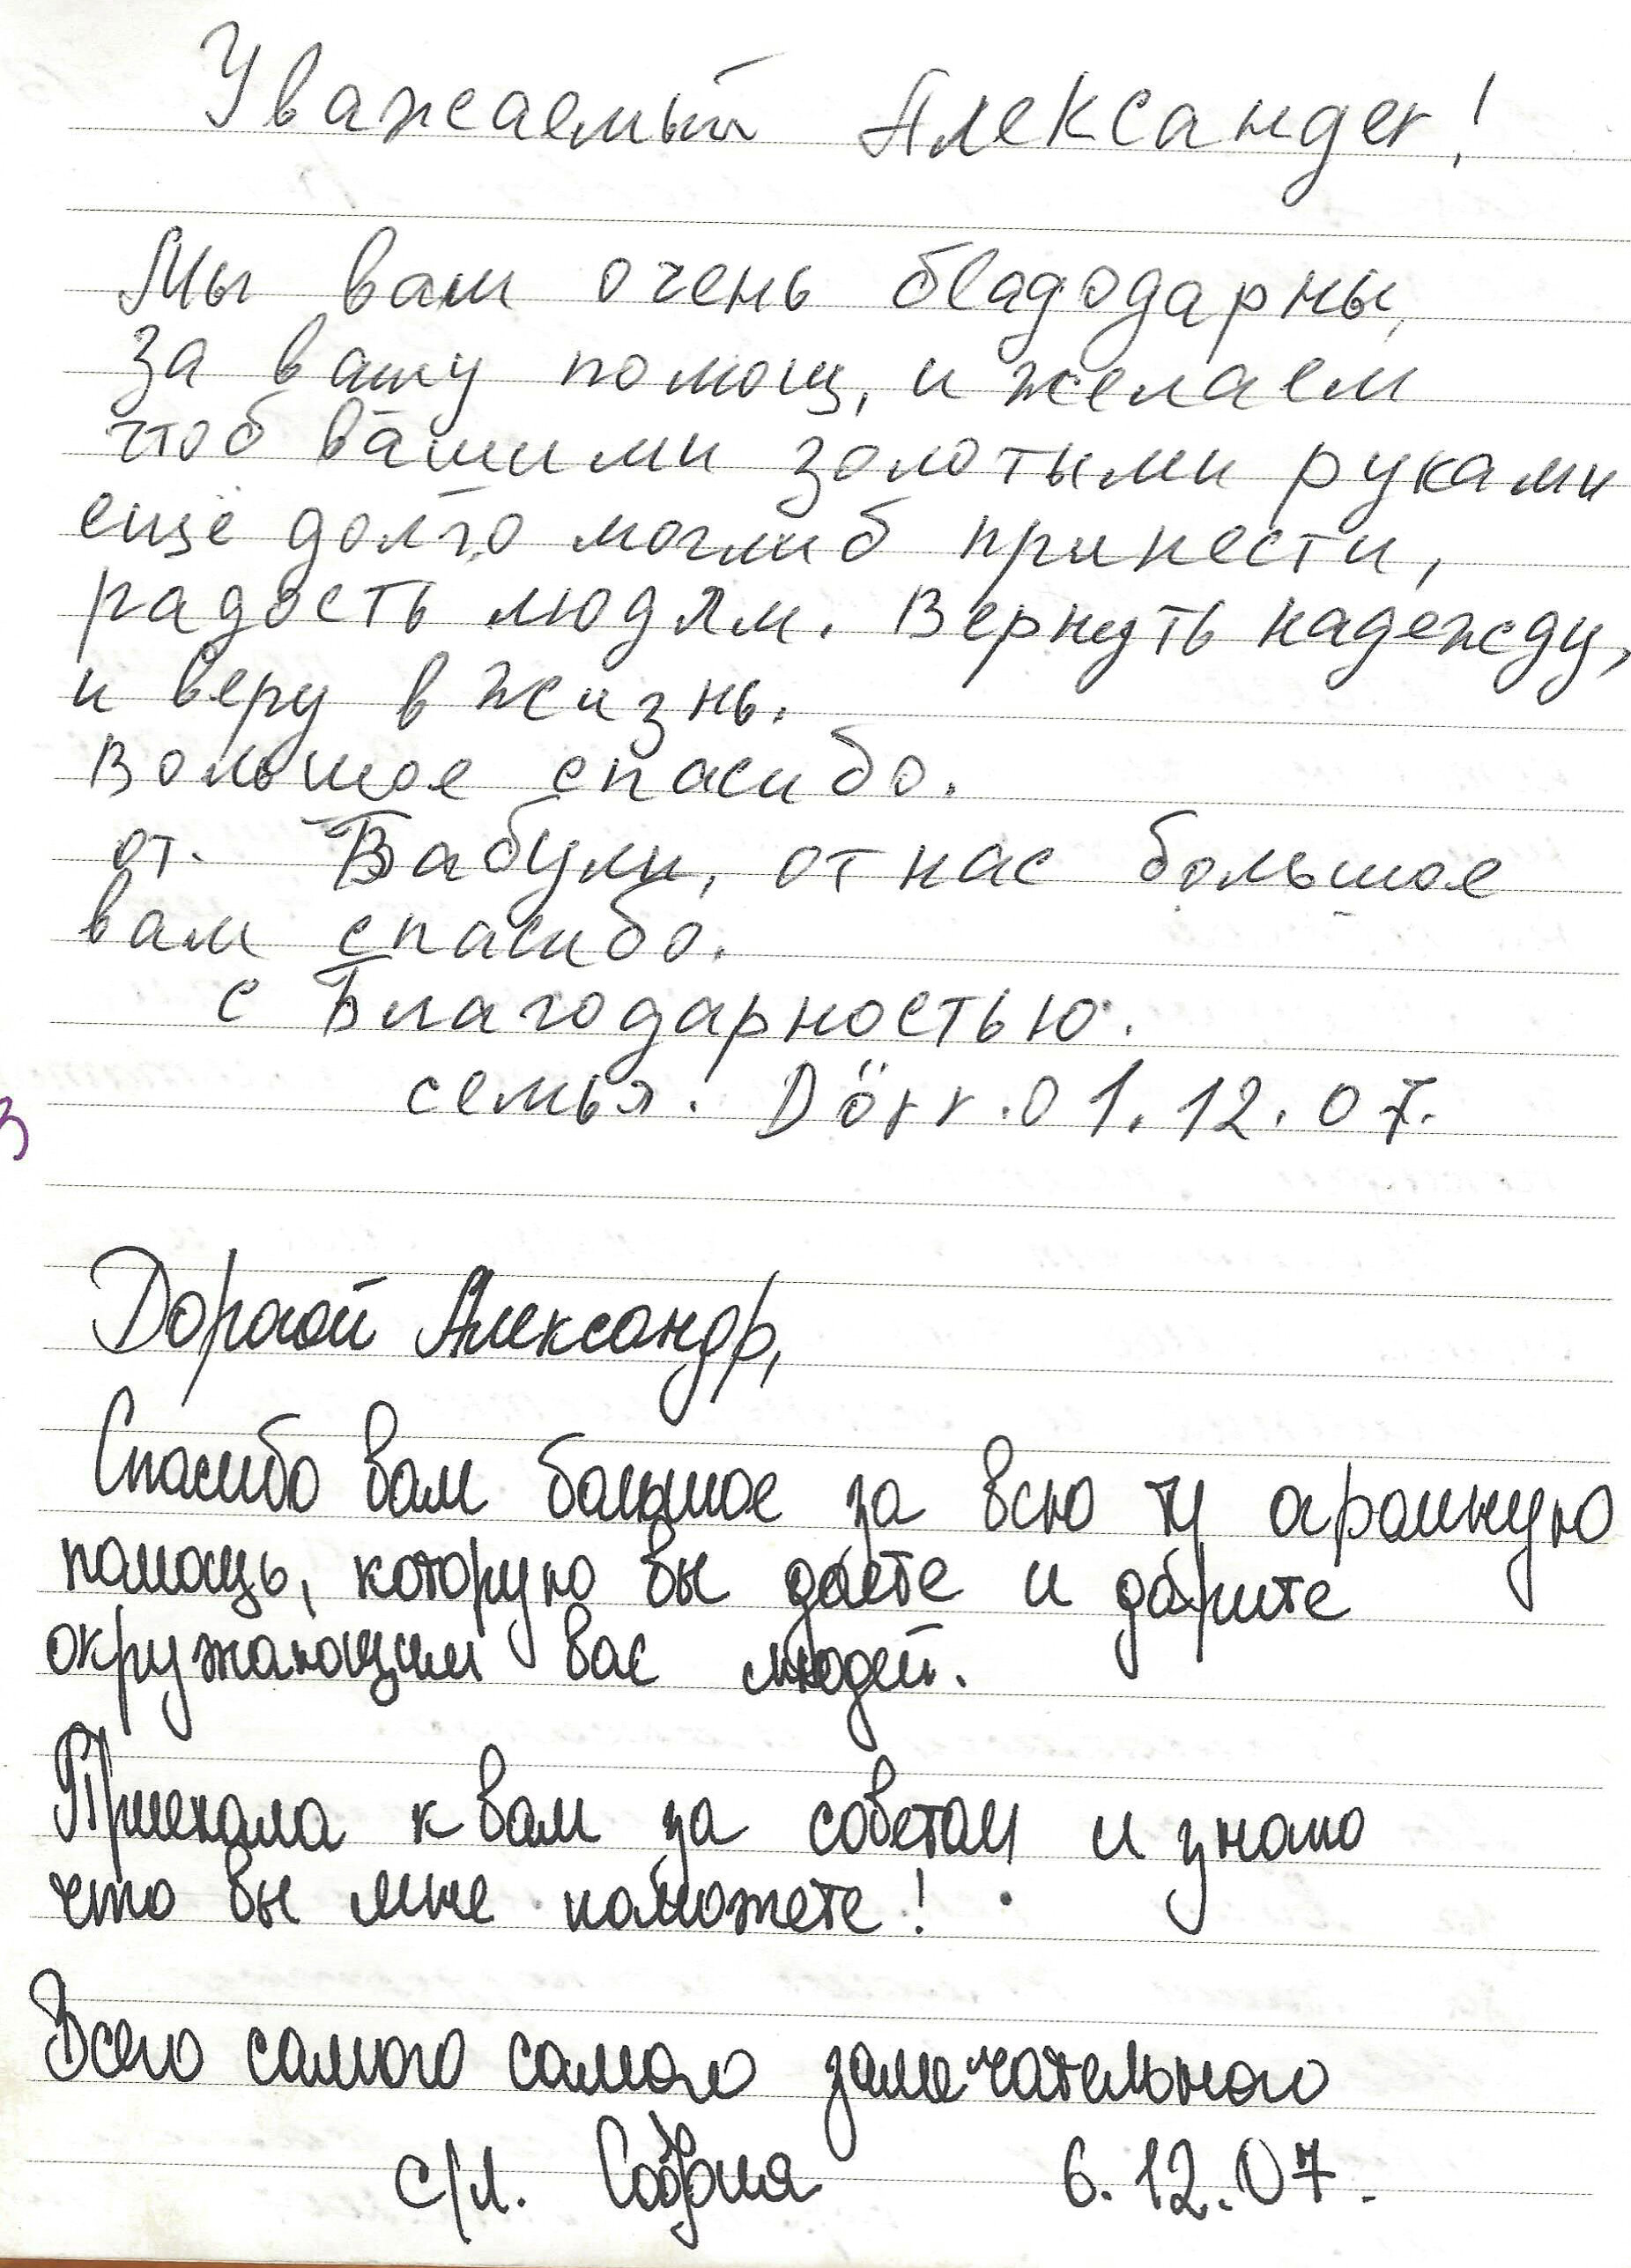 Уважаемый Александеr!
Мы вам очень бladодарны,
за вашу помощ, и желаем
чтоб вашими золотыми руками
ещё долго моглиб принести,
радость людям. Вернуть надежду,
и веру в жизнь.
Вольшое спасибо.
от. Бабули, от нас большое
вам спасибо.
с Благодарностью.
семья. Dörr. 01.12.07.
Дорогой Александр,
Спасибо вам большое за всю ту огромную
помощь, которую вы даете и дарите
окружающим вас людей.
Приехала к вам за советом и знаю
что вы мне поможете!
Всего самого самого замечательного
с/л. София 6.12.07.